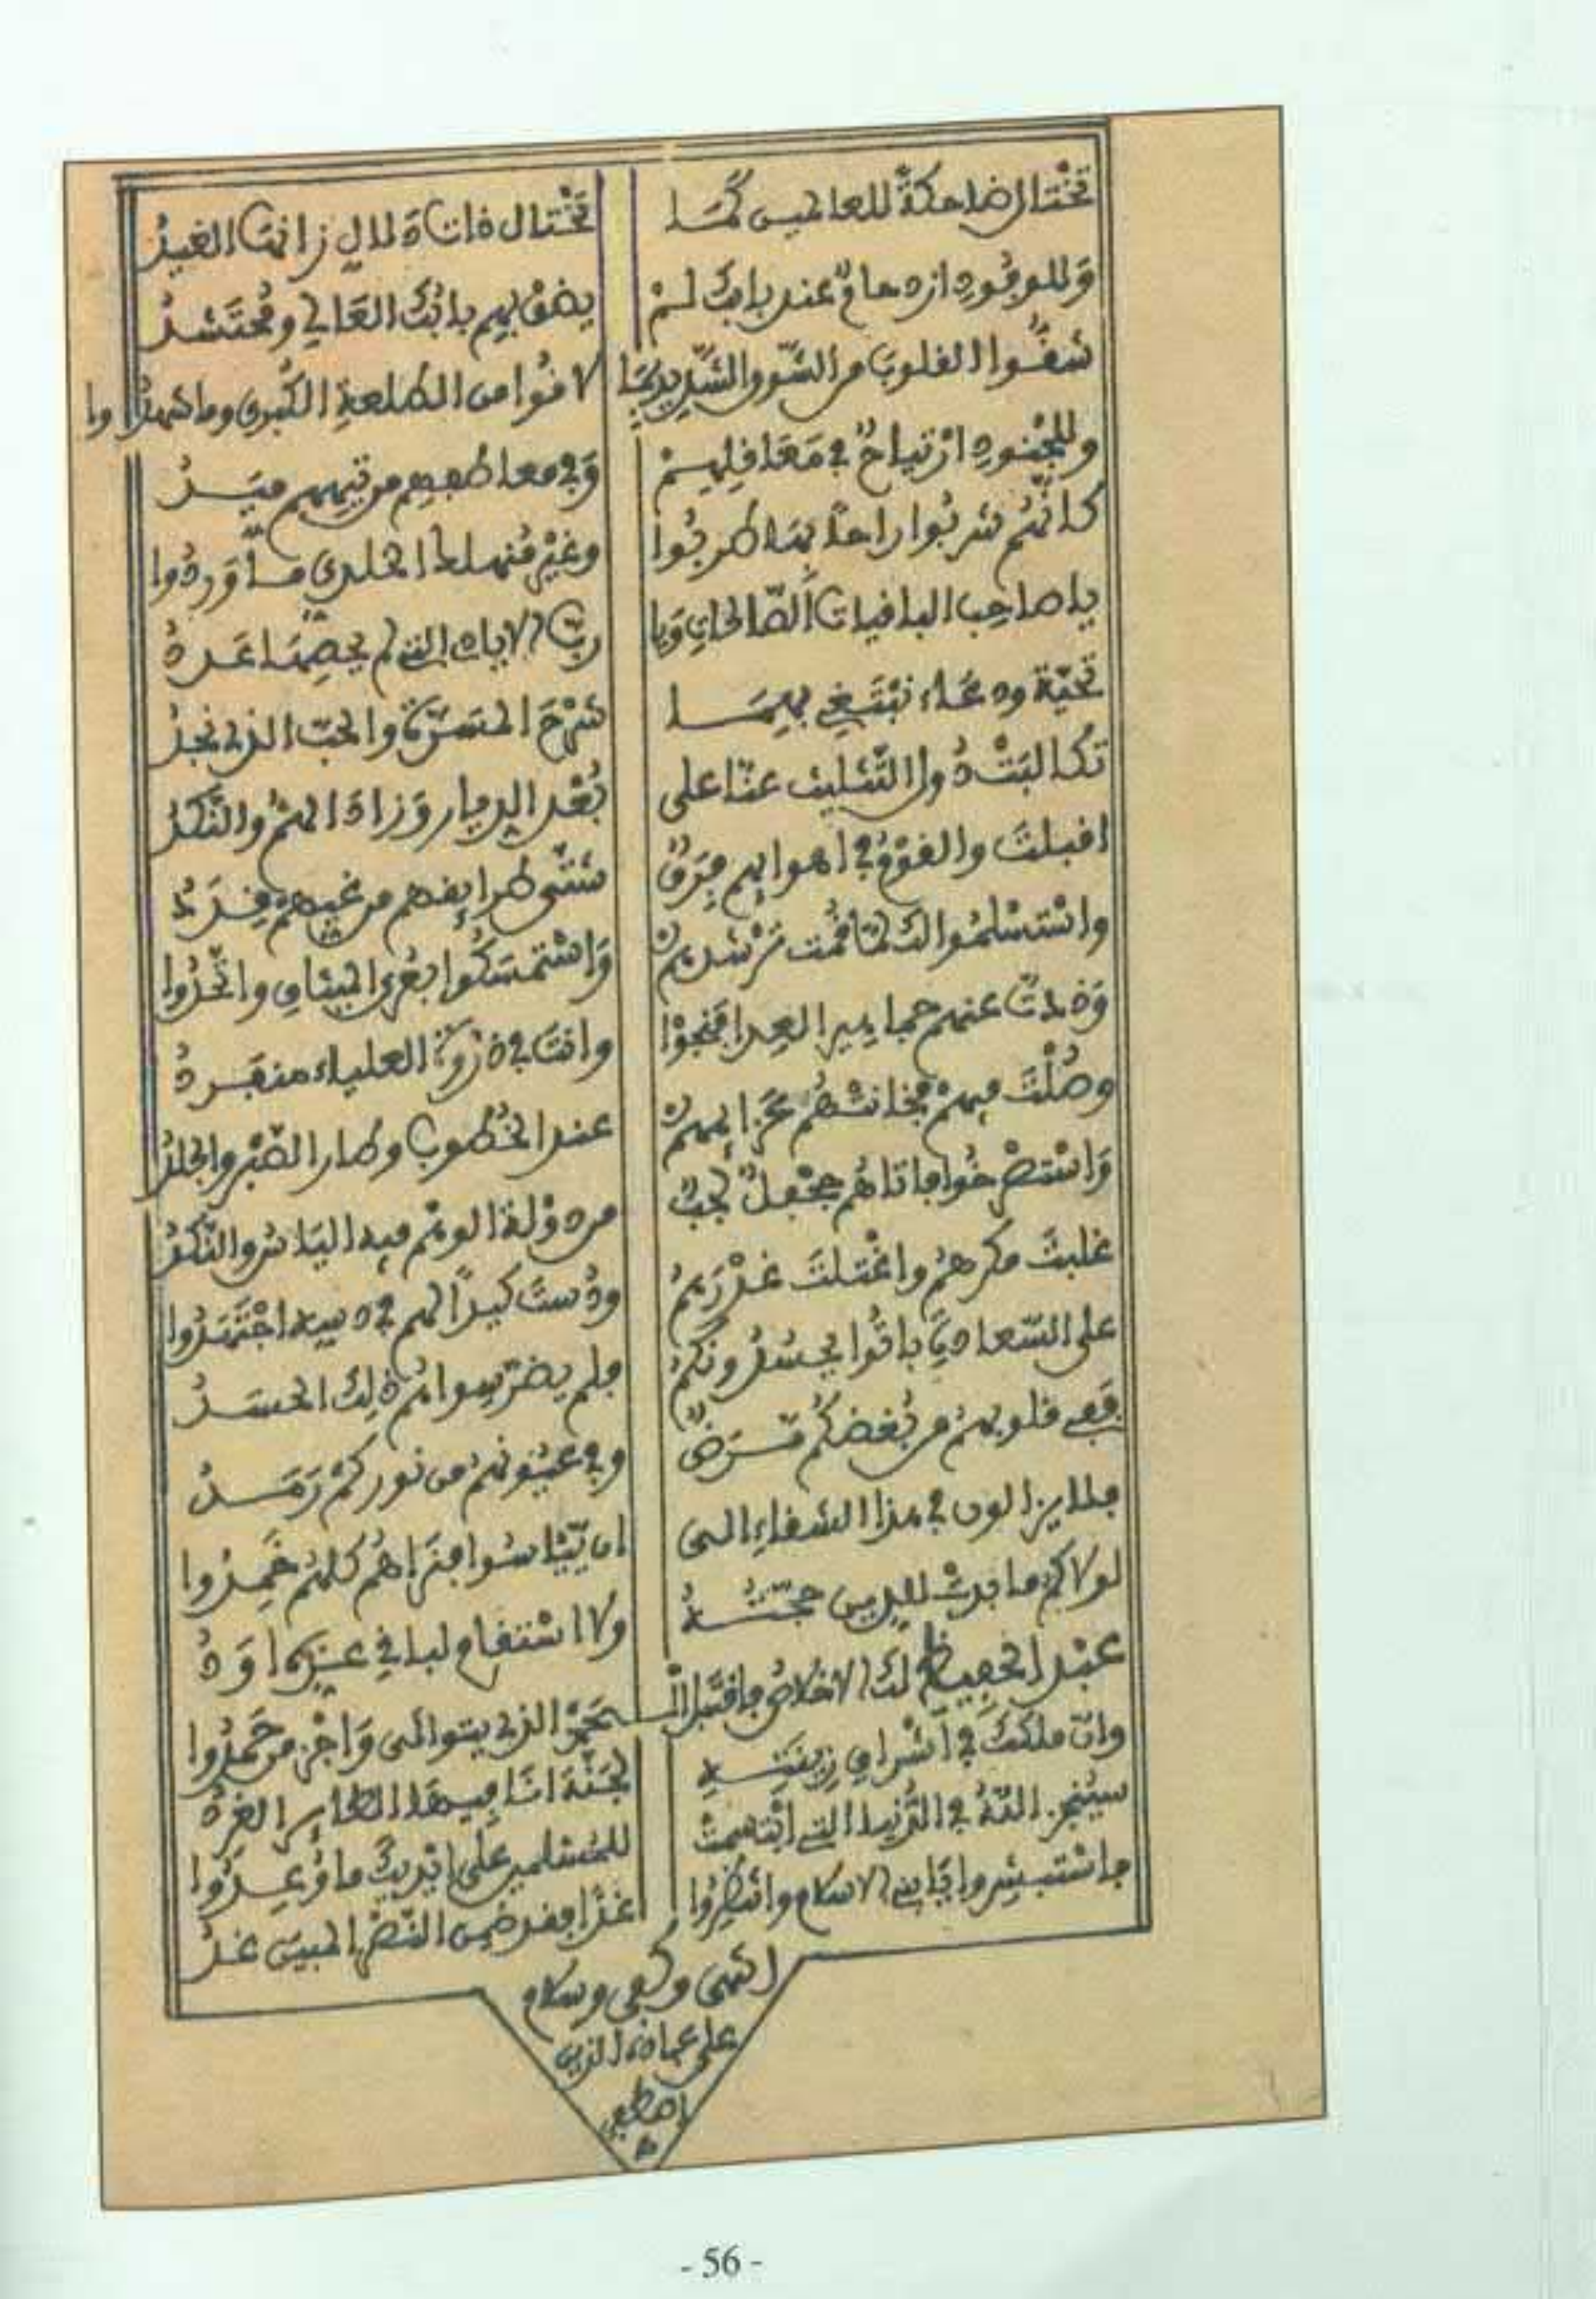 تختال ضاحكةً للعالمين كما تختال ذات دلال زانها الغيدُ
وللوفود ازدحامٌ عند بابك لمْ يضق بهم بابُك العالي ومحتشدُ
شقُّوا القلوب من الشوق الشديد بما لاقوا من الطلعة الكبرى وما شهدوا
وللجنود ارتياحٌ في محافلهمْ وفي معاطفهم من تيههم ميَدُ
كأنهم شربوا راحًا بها طربوا وغير منهلك الحلوى ما وردوا
يا صاحب الباقيات الصالحات ويا ربّ الايات التي لم يحصها عددُ
تحيّة ودعاء نبتغي بهما شرح المسرّة والحبّ الذي نجدُ
تكالبتْ دول التثليث عنّا على بُعد الديار وزاد الهمُّ والنكدُ
اقبلتَ والقومُ في اهوائهم فِرَقٌ شتّى طرايقهم من غيهم قِددُ
واستسلموا لك لما قُمت ترشدهمْ واستمسكُوا بعُرى الميثاق واتّحدُوا
وذُدتَ عنهم جماهير العدا فنجوْا وانت في ذروة العلياء منفردُ
وصُلْتَ فيهمْ فخانتْهُم عزائمهمْ عند الخطوب وطار الصّبر والجلدُ
واستصرخُوا فأتاهُم جحفلٌ لجبٌ من دولة الوهم فيه اليأس والنّكدُ
غلبتَ مكرهمْ واغتلتَ غدْرَهمُ ودُستَ كيدًا لهم في دسه اجتهدُوا
على السّعادة باتُوا يحسدُونكمُ فلم يضرّ سواهُم ذلك الحسدُ
ففي قلوبهمْ من بُغضكُم مرضٌ وفي عيُونهمْ من نوركمْ رمدُ
فلا يزالون في هذا الشقاء الى ان يّيْأسُوا فنراهُم كلهمْ خمدُوا
لولاكم ما بدتْ للدين حجّتُهُ ولا استقام لباغي عزّة اودُ
عبد الحفيظ لك الاخلاص فاقتبل الـ ـحمْد الذي يتوالى واجْز من حمدُوا
وانّ ملكك في اشراق زينتهِ لجنّة انا فيها الطاير الغردُ
سيُنجز اللهُ في الدُّنيا التي ابتسمتْ للمسلمين على ايديك ما وُعدُوا
فاستبشروا يا بني الاسلام وانتظروا غدًا فقد ضمن النّصْر المبين غدُ
انتهى وكفى وسلام
على عباده الذين
اصطفى